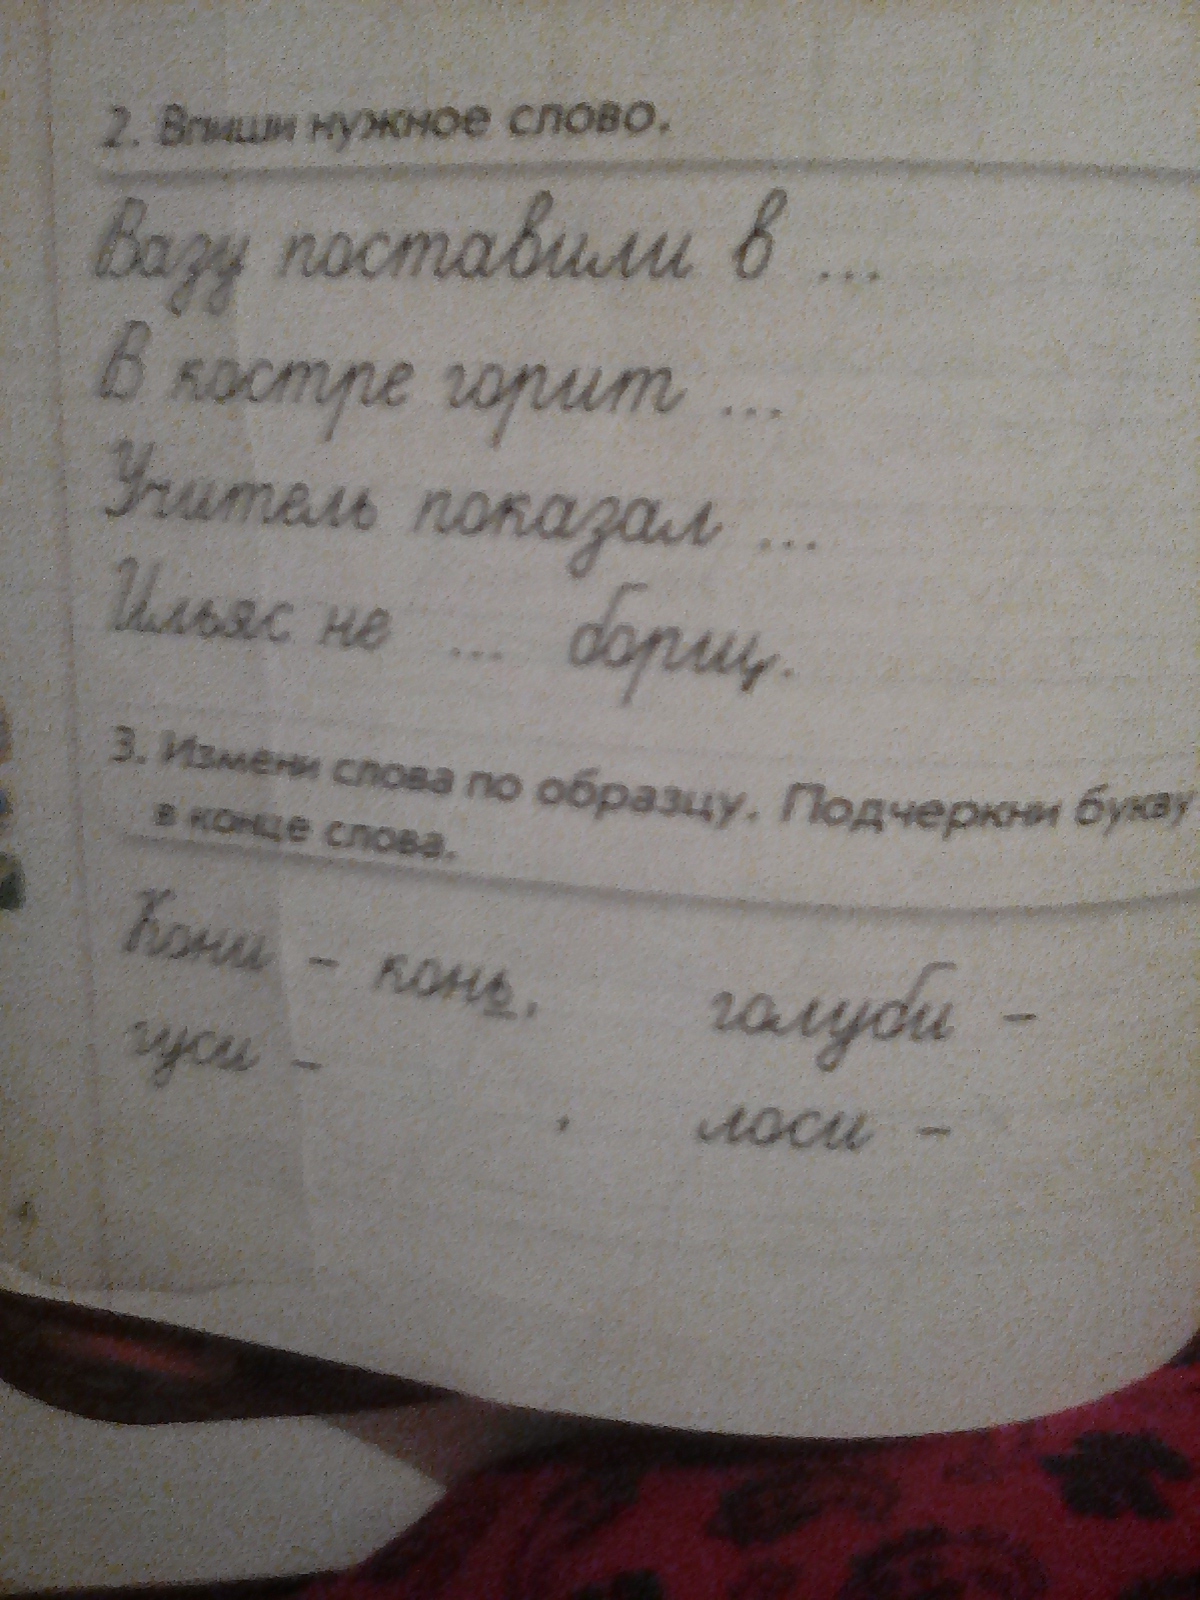 2. Впиши нужное слово.
Вазу поставили в ...
В костре горит ...
Учитель показал ...
Ильяс не ... борщ.
3. Измени слова по образцу. Подчеркни букву
в конце слова.
Кони - конь, голуби -
гуси - , лоси -